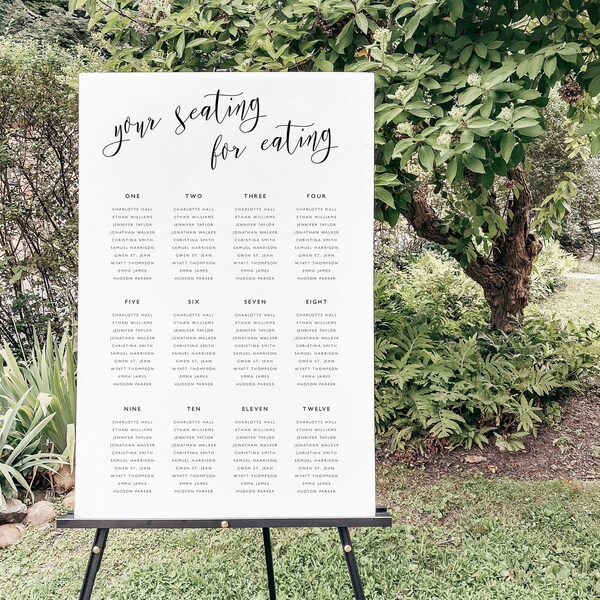 your seating
for eating
ONE TWO THREE FOUR
CHARLOTTE HALL CHARLOTTE HALL CHARLOTTE HALL CHARLOTTE HALL
ETHAN WILLIAMS ETHAN WILLIAMS ETHAN WILLIAMS ETHAN WILLIAMS
JENNIFER TAYLOR JENNIFER TAYLOR JENNIFER TAYLOR JENNIFER TAYLOR
JONATHAN WALKER JONATHAN WALKER JONATHAN WALKER JONATHAN WALKER
CHRISTINA SMITH CHRISTINA SMITH CHRISTINA SMITH CHRISTINA SMITH
SAMUEL HARRISON SAMUEL HARRISON SAMUEL HARRISON SAMUEL HARRISON
GWEN ST. JEAN GWEN ST. JEAN GWEN ST. JEAN GWEN ST. JEAN
WYATT THOMPSON WYATT THOMPSON WYATT THOMPSON WYATT THOMPSON
EMMA JAMES EMMA JAMES EMMA JAMES EMMA JAMES
HUDSON PARKER HUDSON PARKER HUDSON PARKER HUDSON PARKER
FIVE SIX SEVEN EIGHT
CHARLOTTE HALL CHARLOTTE HALL CHARLOTTE HALL CHARLOTTE HALL
ETHAN WILLIAMS ETHAN WILLIAMS ETHAN WILLIAMS ETHAN WILLIAMS
JENNIFER TAYLOR JENNIFER TAYLOR JENNIFER TAYLOR JENNIFER TAYLOR
JONATHAN WALKER JONATHAN WALKER JONATHAN WALKER JONATHAN WALKER
CHRISTINA SMITH CHRISTINA SMITH CHRISTINA SMITH CHRISTINA SMITH
SAMUEL HARRISON SAMUEL HARRISON SAMUEL HARRISON SAMUEL HARRISON
GWEN ST. JEAN GWEN ST. JEAN GWEN ST. JEAN GWEN ST. JEAN
WYATT THOMPSON WYATT THOMPSON WYATT THOMPSON WYATT THOMPSON
EMMA JAMES EMMA JAMES EMMA JAMES EMMA JAMES
HUDSON PARKER HUDSON PARKER HUDSON PARKER HUDSON PARKER
NINE TEN ELEVEN TWELVE
CHARLOTTE HALL CHARLOTTE HALL CHARLOTTE HALL CHARLOTTE HALL
ETHAN WILLIAMS ETHAN WILLIAMS ETHAN WILLIAMS ETHAN WILLIAMS
JENNIFER TAYLOR JENNIFER TAYLOR JENNIFER TAYLOR JENNIFER TAYLOR
JONATHAN WALKER JONATHAN WALKER JONATHAN WALKER JONATHAN WALKER
CHRISTINA SMITH CHRISTINA SMITH CHRISTINA SMITH CHRISTINA SMITH
SAMUEL HARRISON SAMUEL HARRISON SAMUEL HARRISON SAMUEL HARRISON
GWEN ST. JEAN GWEN ST. JEAN GWEN ST. JEAN GWEN ST. JEAN
WYATT THOMPSON WYATT THOMPSON WYATT THOMPSON WYATT THOMPSON
EMMA JAMES EMMA JAMES EMMA JAMES EMMA JAMES
HUDSON PARKER HUDSON PARKER HUDSON PARKER HUDSON PARKER